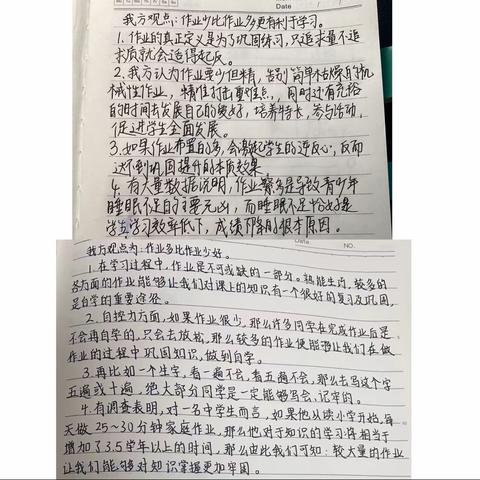 Date
我方观点：作业少比作业多更有利于学习。
1. 作业的真正定义是为了巩固练习，只追求量不追
求质就会适得起反。
2. 我方认为作业要少但精，告别简单枯燥的机
械性作业，精准打击重难点，同时还有充裕
的时间去发展自己的爱好，培养特长，参与活动，
促进学生全面发展。
3. 如果作业布置的多，会激起学生的逆反心，反而
达不到巩固提升的本质效果。
4. 有大量数据说明，作业繁多是导致青少年
睡眠不足的主要元凶，而睡眠不足恰好是
学生学习效率低下，成绩下降的根本原因。
Date
NO.
我方观点为：作业多比作业少好。
1. 在学习过程中，作业是不可或缺的一部分。熟能生巧，较多的
多方面的作业能够让我们对课上的知识有一个很好的复习及巩固，
是自学的重要途径。
2. 自控力方面，如果作业很少，那么许多同学在完成作业后是
不会再自学的，只会去放松，那么较多的作业便能够让我们在做
作业的过程中巩固知识，做到自学。
3. 再比如一个生字，看一遍不会，看五遍不会，那么去写这个字
五遍或十遍，绝大部分同学是一定能够写会，记牢的。
4. 有调查表明，对一名中学生而言，如果他从读小学开始，每
天做25～30分钟家庭作业，那么他对于知识的学习将相当于
增加了3.5学年以上的时间，那么由此我们可知：较大量的作业
让我们能够对知识掌握更加牢固。